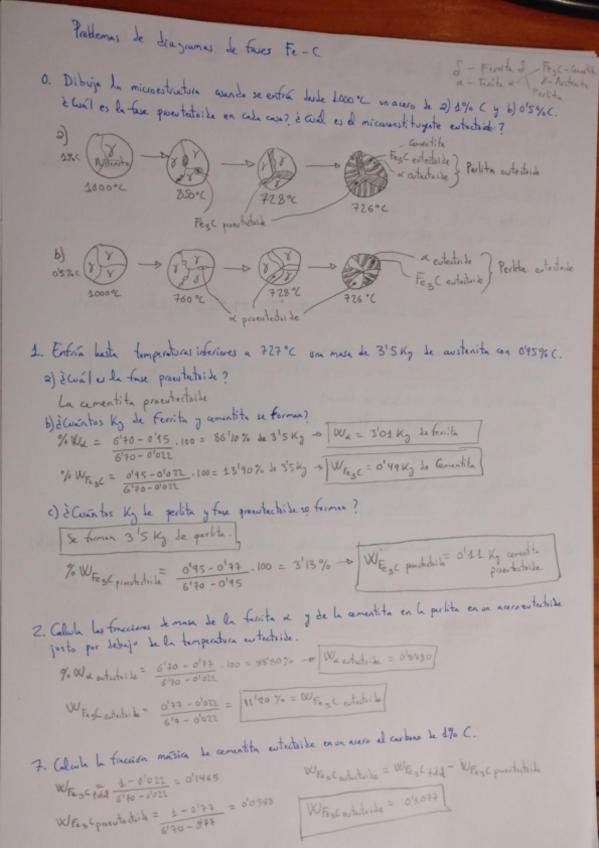 Problemas de diagramas de fases Fe-C
δ - Ferrita δ
Fe3C - Cementita
γ - Austenita
Perlita
0. Dibuja la microestructura cuando se enfría desde 1000°C un acero de a) 1% C y b) 0'5% C.
¿Cuál es la fase proeutectoide en cada caso? ¿Cuál es el microconstituyente eutectoide?
a)
1%C
Austenita
γ γ γ
γ γ
1000°C
850°C
728°C
726°C
Fe3C proeutectoide
cementita
Fe3C eutectoide
α eutectoide
Perlita eutectoide
b)
0'5%C
γ γ γ
γ γ γ
γ γ
1000°C
760°C
728°C
726°C
α proeutectoide
α eutectoide
Fe3C eutectoide
Perlita eutectoide
1. Enfría hasta temperaturas inferiores a 727°C una masa de 3'5 Kg de austenita con 0'95% C.
a) ¿Cuál es la fase proeutectoide?
La cementita proeutectoide
b) ¿Cuántos Kg de ferrita y cementita se forman?
% Wα = 6'70 - 0'95 / 6'70 - 0'022 · 100 = 86'10% de 3'5 Kg → Wα = 3'01 Kg de ferrita
% WFe3C = 0'95 - 0'022 / 6'70 - 0'022 · 100 = 13'90% de 3'5 Kg → WFe3C = 0'49 Kg de Cementita
c) ¿Cuántos Kg de perlita y fase proeutectoide se forman?
Se forman 3'5 Kg de perlita.
% WFe3C proeutectoide = 0'95 - 0'77 / 6'70 - 0'95 · 100 = 3'13% → WFe3C proeutectoide = 0'11 Kg cementita proeutectoide
2. Calcula las fracciones de masa de la ferrita α y de la cementita en la perlita en un acero eutectoide
justo por debajo de la temperatura eutectoide.
% Wα eutectoide = 6'70 - 0'77 / 6'70 - 0'022 · 100 = 88'80% → Wα eutectoide = 0'8880
WFe3C eutectoide = 0'77 - 0'022 / 6'7 - 0'022 = 11'20% = WFe3C eutectoide
7. Calcula la fracción másica de cementita eutectoide en un acero al carbono de 1% C.
WFe3C total = 1 - 0'022 / 6'70 - 0'022 = 0'1465
WFe3C eutectoide = WFe3C total - WFe3C proeutectoide
WFe3C proeutectoide = 1 - 0'77 / 6'70 - 0'77 = 0'0388
WFe3C eutectoide = 0'1077